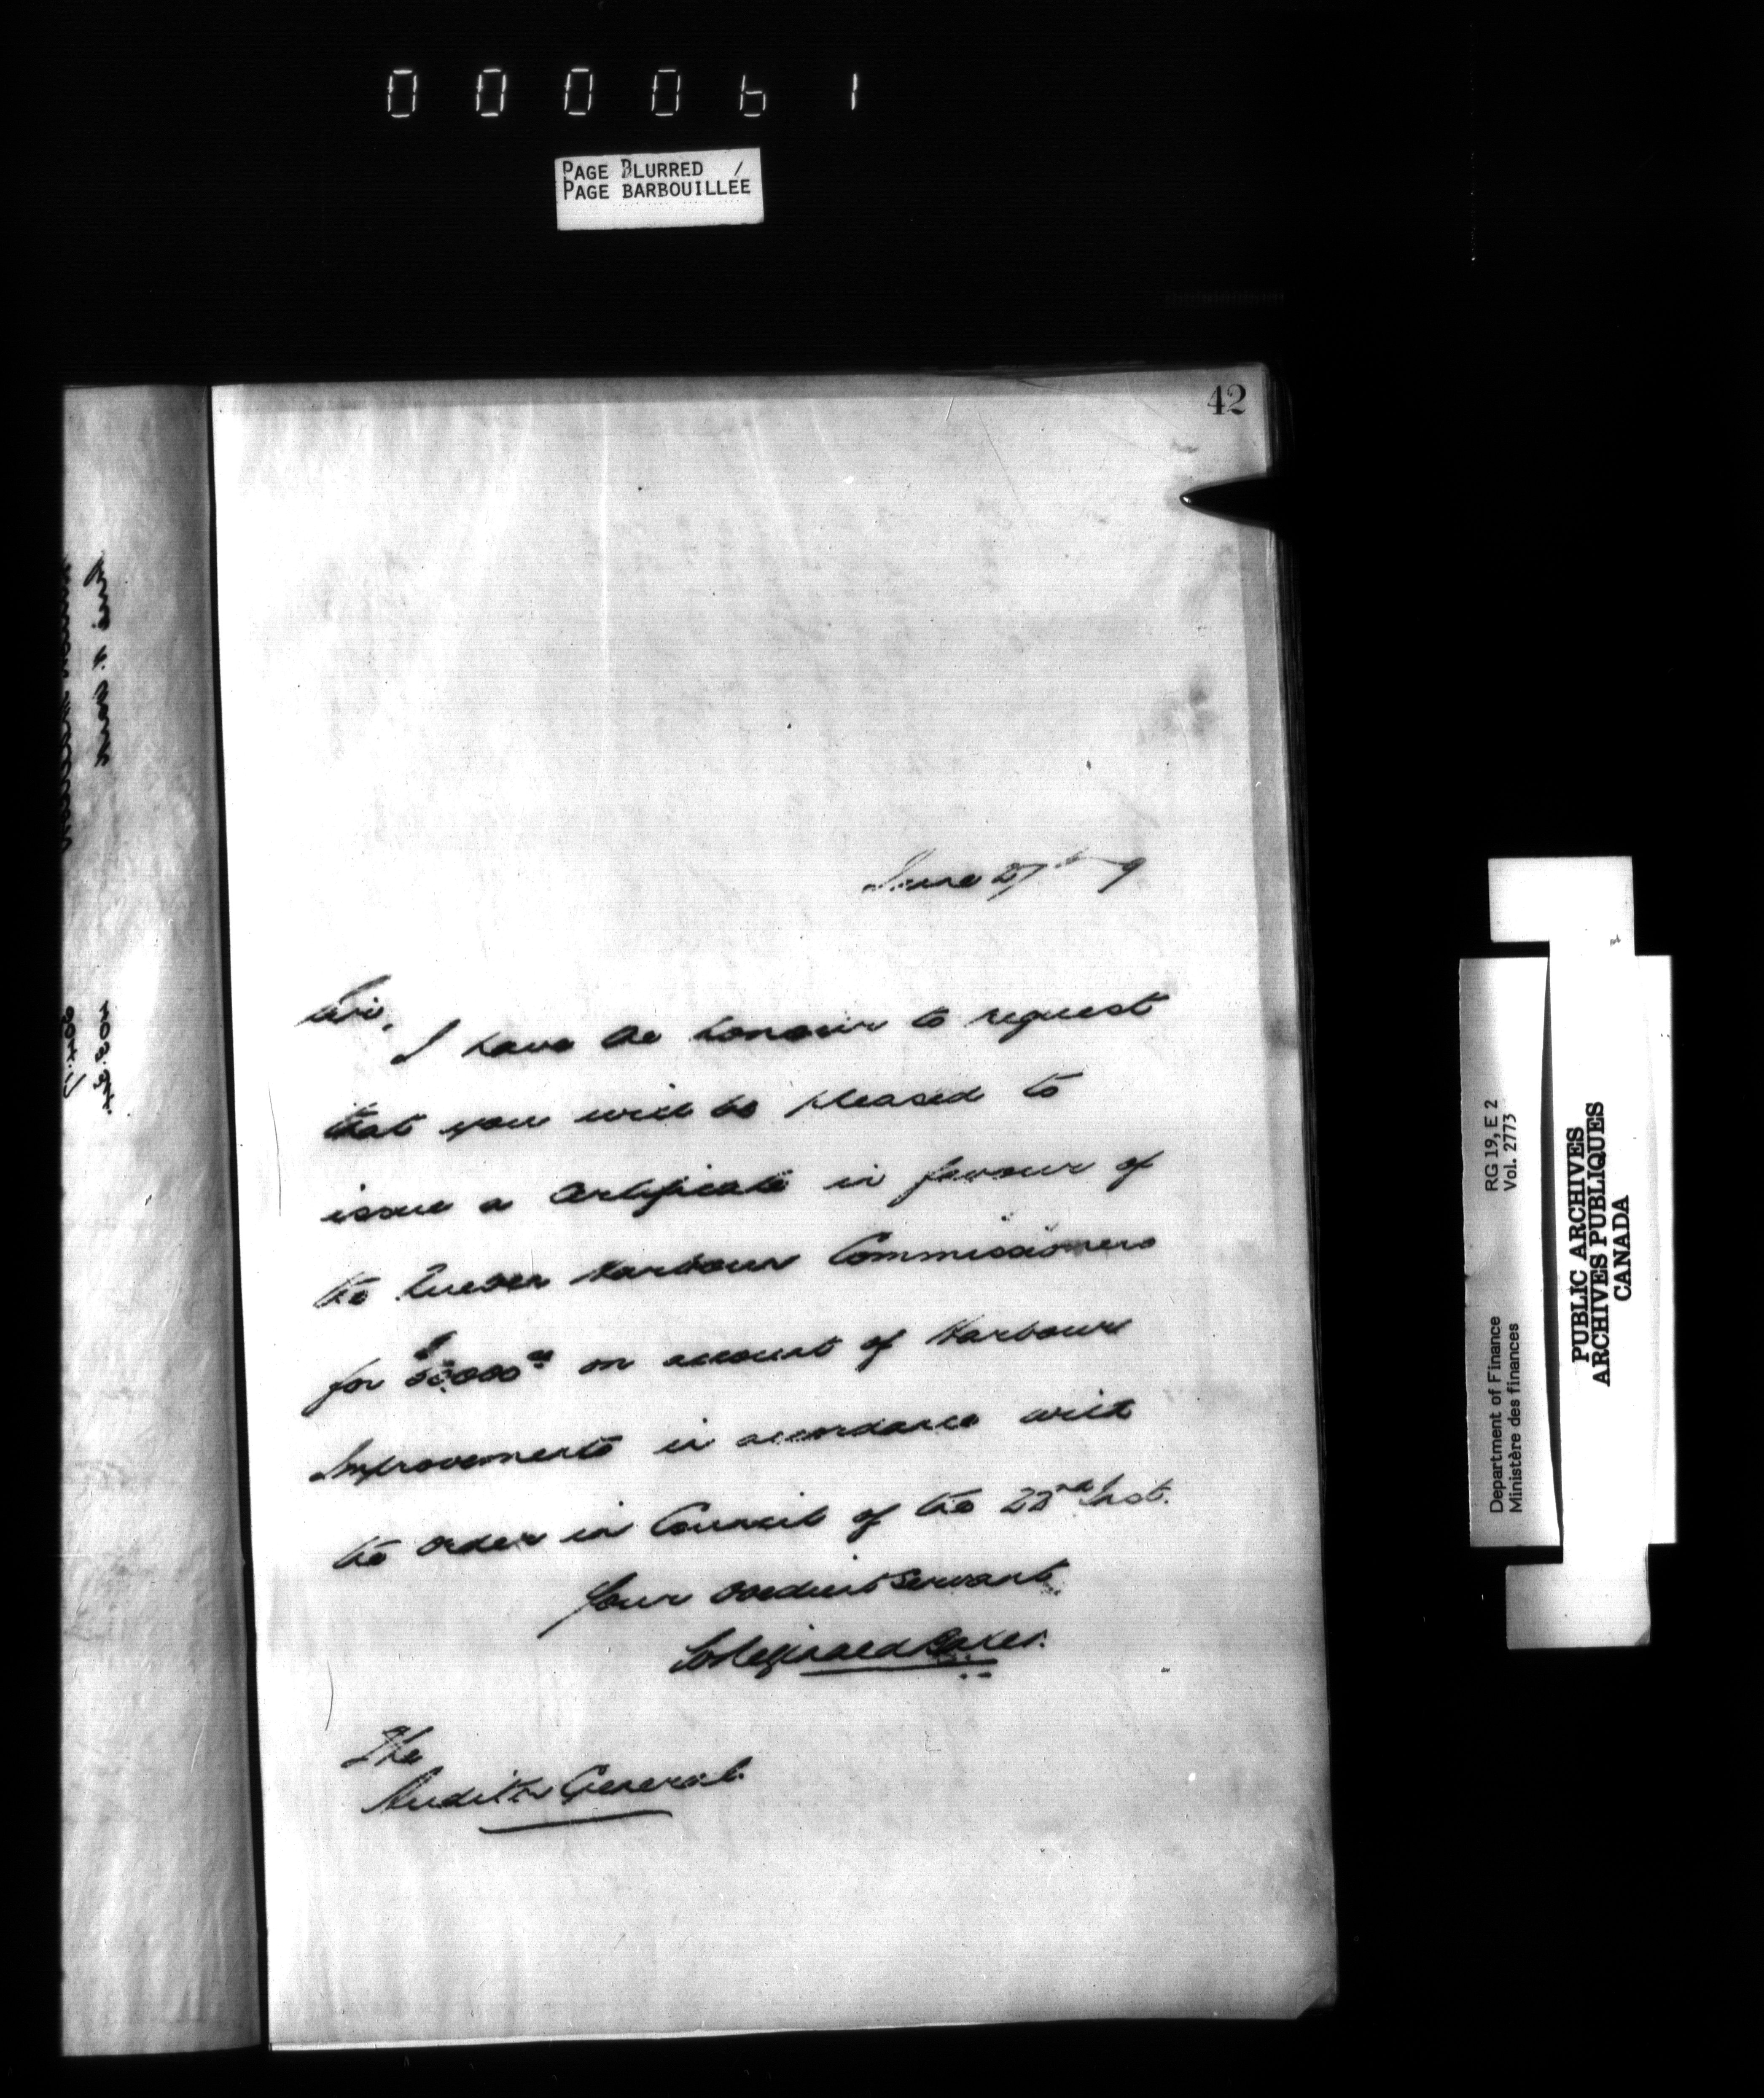 000061
PAGE BLURRED /
PAGE BARBOUILLÉE
42
June 27th 9
Sir,
I have the honour to request
that you will be pleased to
issue a Certificate in favour of
the Quebec Harbour Commissioners
for $50,000.00 on account of Harbour
Improvements in accordance with
the Order in Council of the 22nd Inst.
Your obedient Servant
The
Auditor General.
Department of Finance RG 19, E 2
Ministère des finances Vol. 2773
PUBLIC ARCHIVES
ARCHIVES PUBLIQUES
CANADA